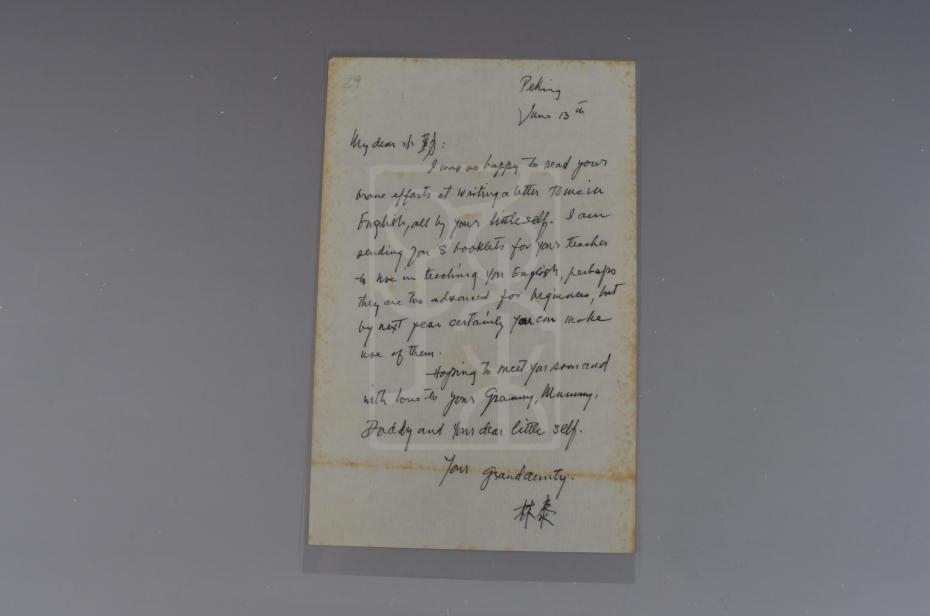 29
Peking
June 13th
My dear 小勤:
I was so happy to read your
brave efforts at writing a letter to me in
English, all by your little self. I am
sending you 3 booklets for your teacher
to use in teaching you English, perhaps
they are too advanced for beginners, but
by next year certainly you can make
use of them.
Hoping to meet you soon and
with love to your Granny, Mummy,
Daddy and your dear little self.
Your Grandaunty.
林泰